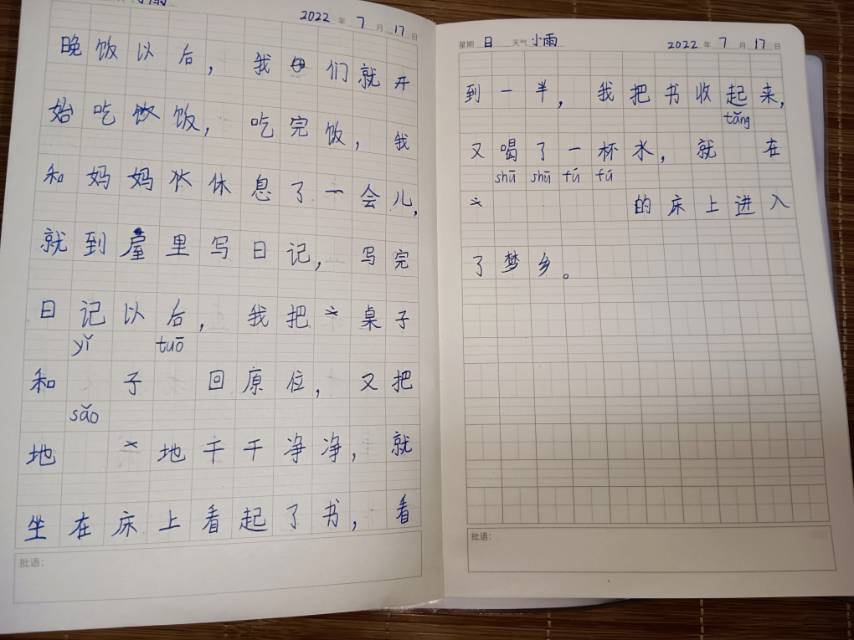 2022 年 7 月 17 日
晚饭以后，我们就开
始吃饭，吃完饭，我
和妈妈休息了一会儿，
就到屋里写日记，写完
日记以后，我把桌子
yǐ tuō
和 子 回原位，又把
sǎo
地 地干干净净，就
坐在床上看起了书，看
批语：
星期 日 天气 小雨 2022 年 7 月 17 日
到一半，我把书收起来，
tǎng
又喝了一杯水，就 在
shū shū fú fú
的床上进入
了梦乡。
批语：